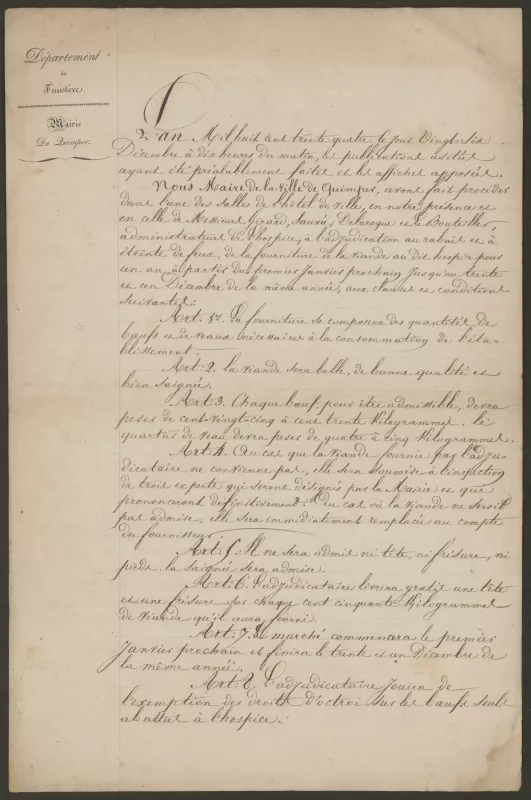 Département
du
Finistère.
Mairie
De Quimper.
L'an Mil huit cent trente quatre le jour Vingt-Six
Décembre à dix heures du matin, les publications usitées
ayant été préalablement faites et les affiches apposées.
Nous Maire de la Ville de Quimper, avons fait procéder
dans l'une des Salles de l'hôtel de Ville, en notre présence et
en celle de Messieurs Girard, Sauré, Delaroque et Le Bouteiller,
administrateurs de l'hospice, à l'adjudication au rabais et à
éteinte de feux, de la fourniture de la viande au dit hospice pour
un an, à partir du premier Janvier prochain jusqu'au trente
et un Décembre de la même année, aux clauses et conditions
suivantes:
Art: 1er La fourniture se composera des quantités de
bœufs et de veaux nécessaires à la consommation de l'éta-
blissement.
Art: 2. la viande sera belle, de bonne qualité et
bien saignée.
Art: 3. Chaque bœuf, pour être admissible, devra
peser de cent-vingt-cinq à cent trente Kilogrammes. le
quartier de veau devra peser de quatre à cinq Kilogrammes.
Art: 4. Au cas que la viande fournie par l'adju-
dicataire ne convienne pas, elle sera soumise à l'inspection
de trois experts qui seront désignés par la Mairie et que
prononceront définitivement. Du cas où la viande ne serait
pas admise, elle sera immédiatement remplacée au compte
du fournisseur.
Art: 5. Il ne sera admis ni tête, ni fressure, ni
pieds. la Saignée sera admise.
Art: 6. L'adjudicataire livrera gratis une tête
et une fressure sur chaque cent cinquante Kilogrammes
de viande qu'il aura fourni.
Art: 7. Le marché commencera le premier
Janvier prochain et finira le trente et un Décembre de
la même année.
Art: 8. L'adjudicataire Jouira de
l'exemption des droits d'octroi sur les bœufs seuls
abattus à l'hospice.